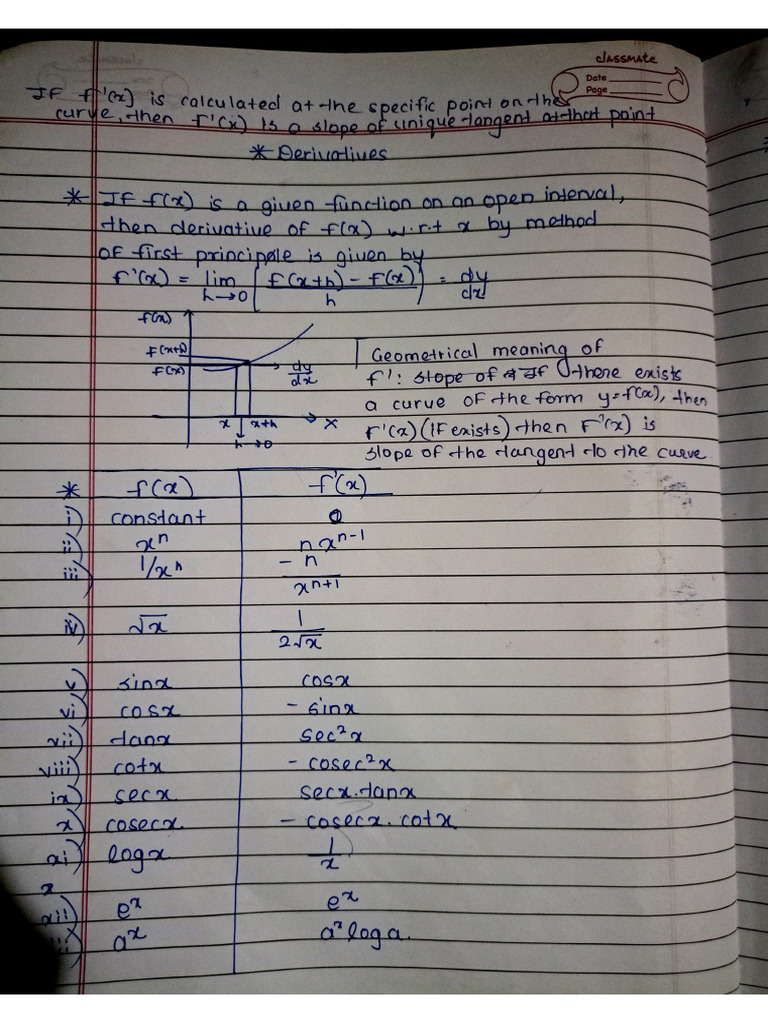 classmate
Date
Page
If f'(x) is calculated at the specific point on the
curve, then f'(x) is a slope of unique tangent at that point
* Derivatives
* If f(x) is a given function on an open interval,
then derivative of f(x) w.r.t x by method
of first principale is given by
f'(x) = lim h→0 [ f(x+h) - f(x) / h ] = dy/dx
f(x)
f(x+h)
f(x)
dy/dx
x x+h x
h→0
Geometrical meaning of
f' : slope of If there exists
a curve of the form y=f(x), then
f'(x) (If exists) then f'(x) is
slope of the tangent to the curve.
* f(x) f'(x)
i) constant 0
ii) xⁿ n xⁿ⁻¹
iii) 1/xⁿ -n / xⁿ⁺¹
iv) √x 1 / 2√x
v) sinx cosx
vi) cosx - sinx
vii) tanx sec²x
viii) cotx - cosec²x
ix) secx secx.tanx
x) cosecx - cosecx.cotx
xi) logx 1/x
x
xii) eˣ eˣ
aˣ aˣ log a.